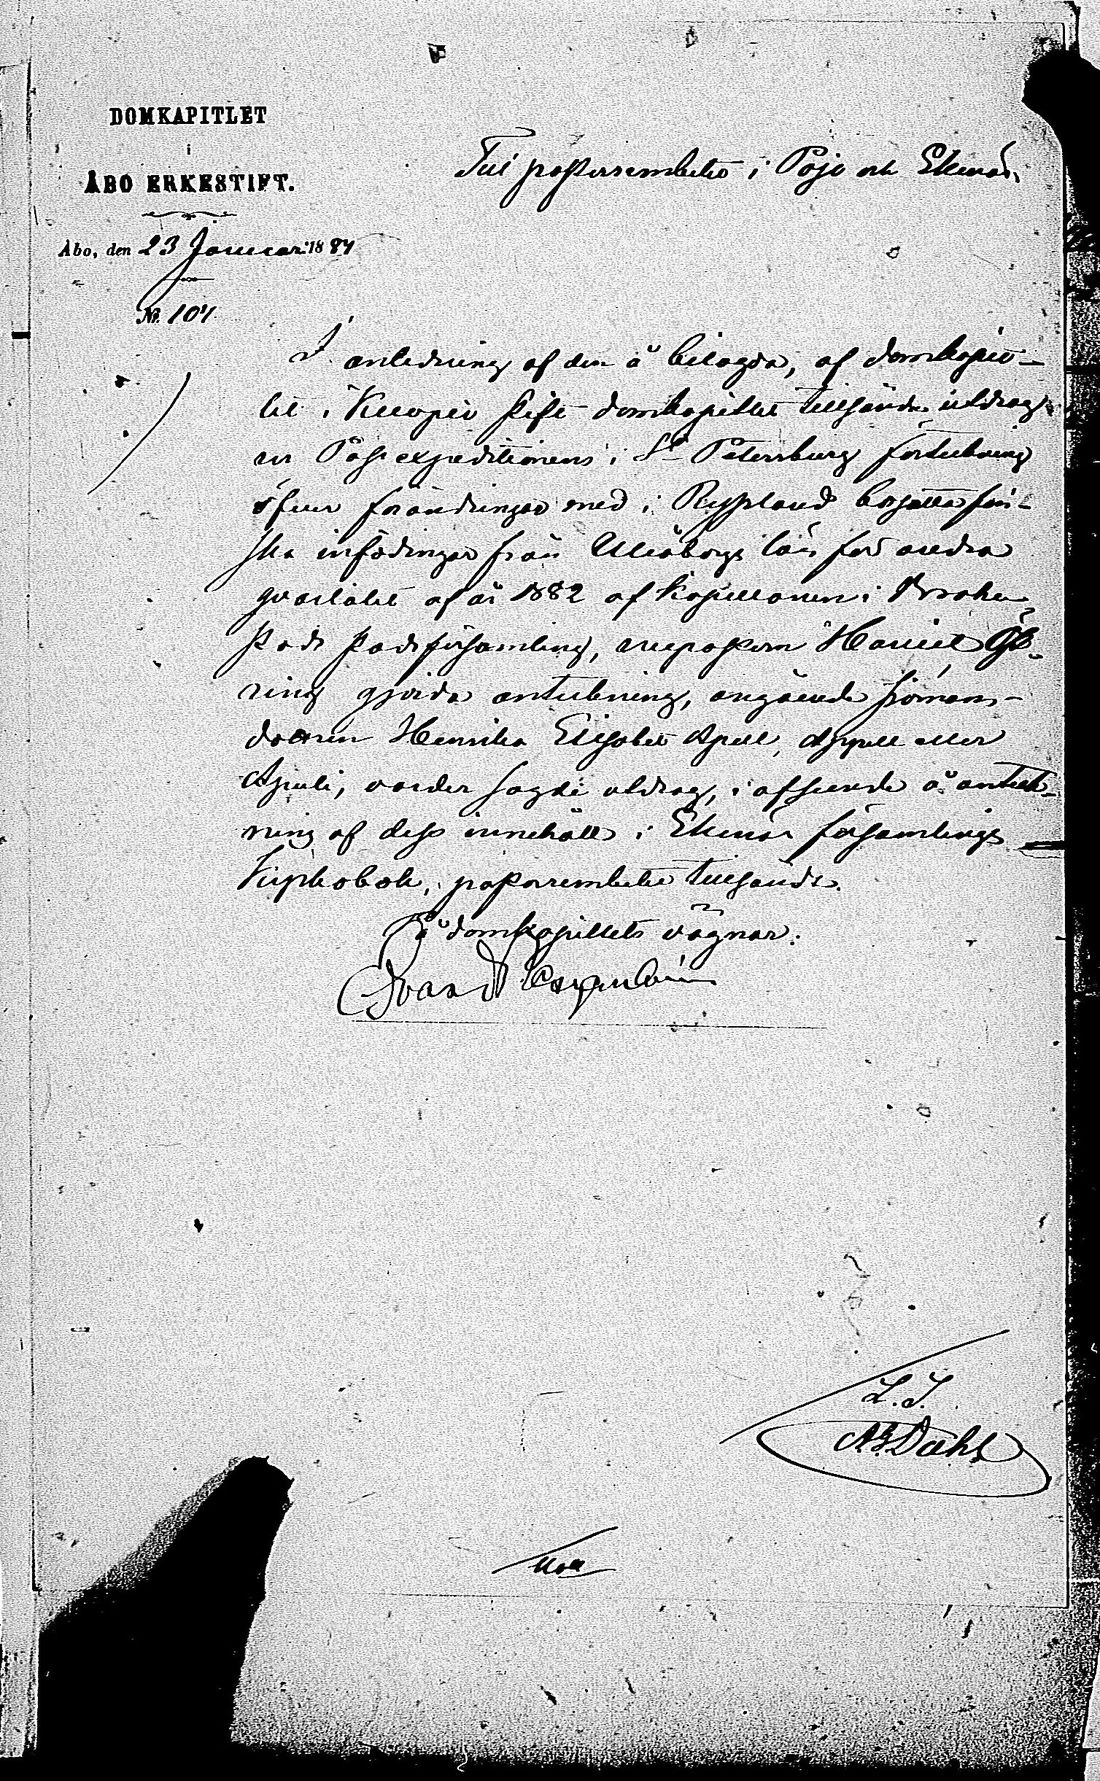 DOMKAPITLET
i
ÅBO ERKESTIFT.
Åbo, den 23 Januari 1884
№ 107
Till pastorsembetet i Pojo och Ekenäs.
I anledning af den å bilagda, af domkapit-
let i Kuopio stift domkapitlet tillsända utdrag
ur Passexpeditionens i St Petersburg förteckning
öfver förändringar med i Ryssland bosatta fin-
ska infödingar från Uleåborgs län för andra
qvartalet af år 1882 af kapellanen i Brahe-
stads stadsförsamling, vicepastorn
gjorda anteckning, angående sjömans-
dottren Henrika Elisabet Apell, Appell eller
Apeli, varder sagde utdrag, i afseende å anteck-
ning af dess innehåll i Ekenäs församlings
kyrkobok, pastorsembetet tillsändt.
På domkapitlets vägnar:
Edvard
L. S.
Dahl